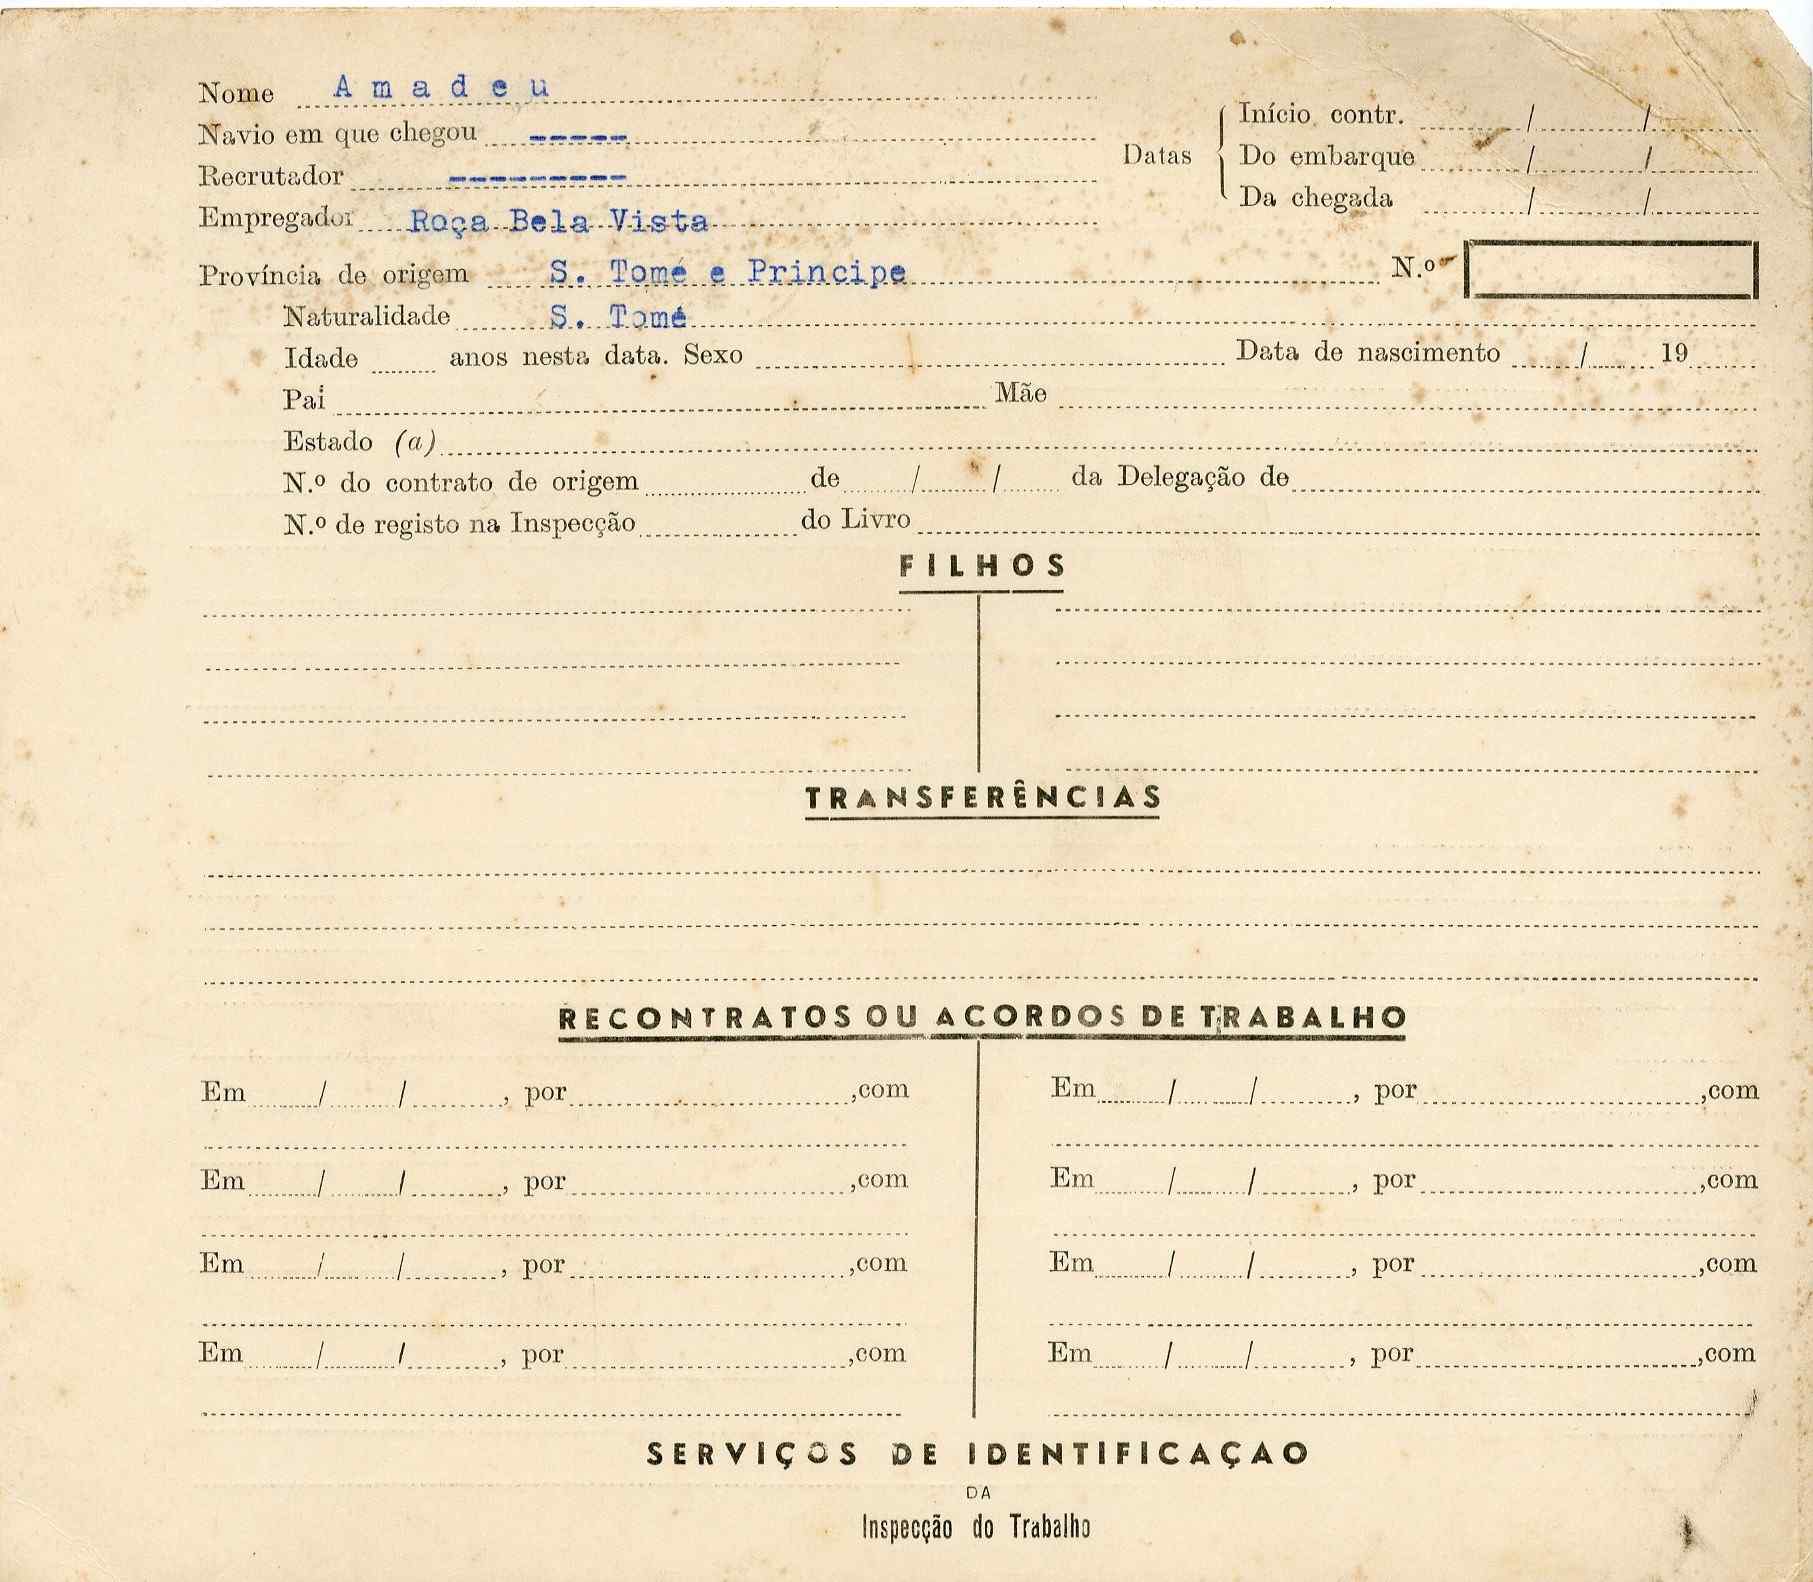 Nome A m a d e u
Navio em que chegou -----
Recrutador ---------
Empregador Roça Bela Vista
Datas
Início contr. / /
Do embarque / /
Da chegada / /
Província de origem S. Tomé e Principe N.º
Naturalidade S. Tomé
Idade anos nesta data. Sexo Data de nascimento / 19
Pai Mãe
Estado (a)
N.º do contrato de origem de / / da Delegação de
N.º de registo na Inspecção do Livro
FILHOS
TRANSFERÊNCIAS
RECONTRATOS OU ACORDOS DE TRABALHO
Em / / , por ,com Em / / , por ,com
Em / / , por ,com Em / / , por ,com
Em / / , por ,com Em / / , por ,com
Em / / , por ,com Em / / , por ,com
SERVIÇOS DE IDENTIFICAÇAO
DA
Inspecção do Trabalho